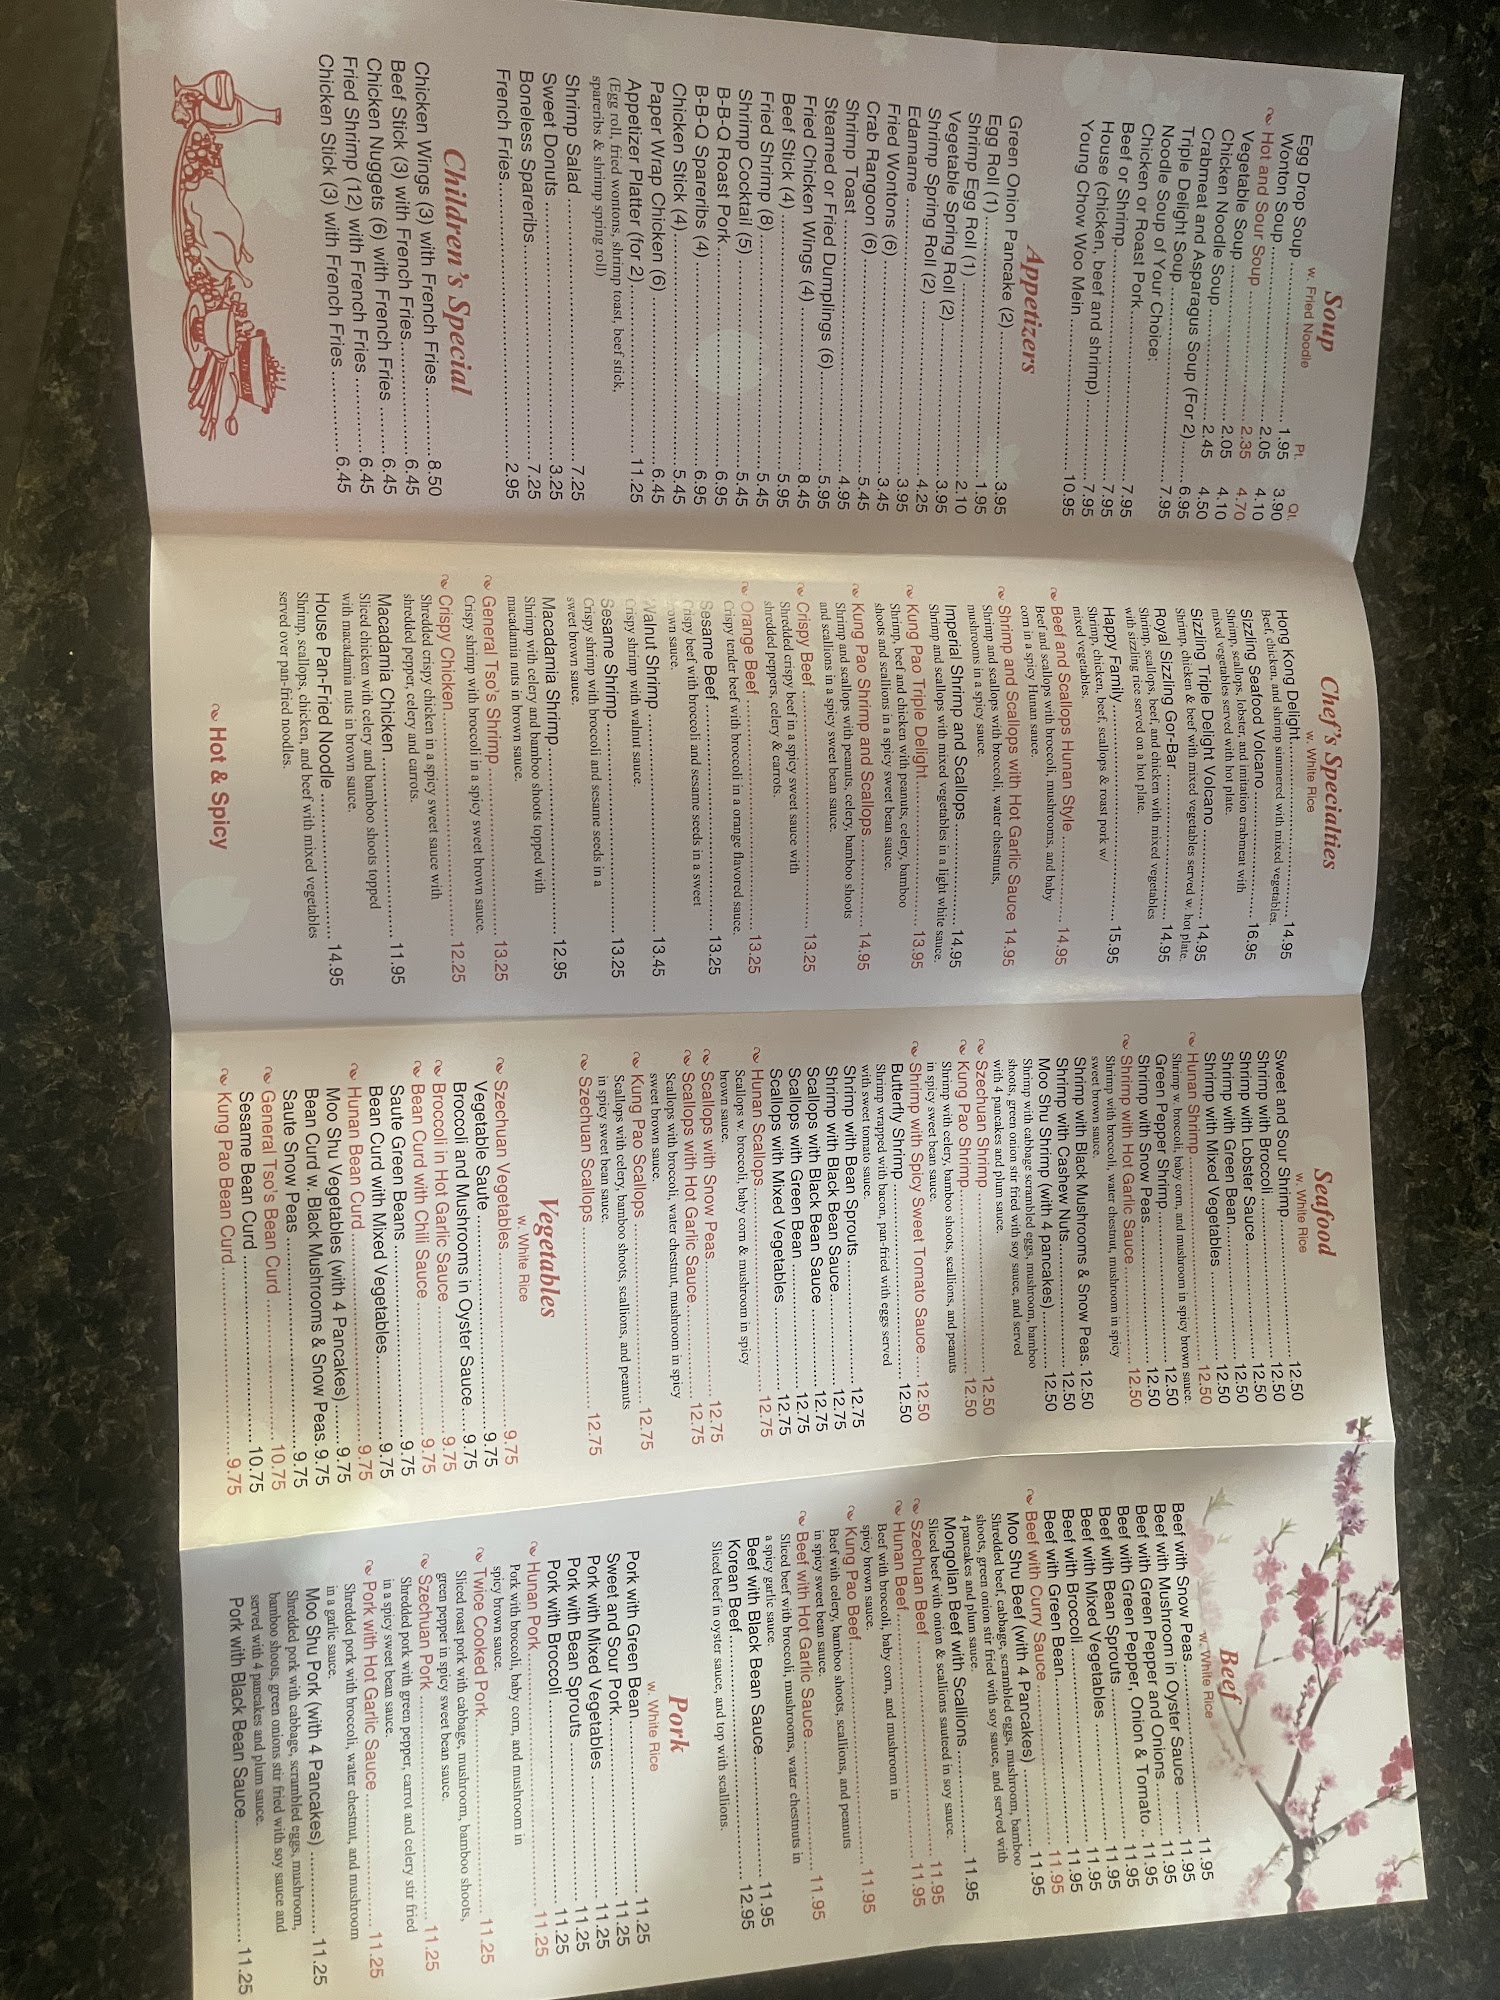 Soup
w. Fried Noodle
Pt. Qt.
Egg Drop Soup 1.95 3.90
Wonton Soup 2.05 4.10
Hot and Sour Soup 2.35 4.70
Vegetable Soup 2.05 4.10
Chicken Noodle Soup 2.45 4.50
Crabmeat and Asparagus Soup (For 2) 6.95
Triple Delight Soup 7.95
Noodle Soup of Your Choice:
Chicken or Roast Pork 7.95
Beef or Shrimp 7.95
House (chicken, beef and shrimp) 7.95
Young Chow Woo Mein 10.95
Appetizers
Green Onion Pancake (2) 3.95
Egg Roll (1) 1.95
Shrimp Egg Roll (1) 2.10
Vegetable Spring Roll (2) 3.95
Shrimp Spring Roll (2) 4.25
Edamame 3.95
Fried Wontons (6) 3.45
Crab Rangoon (6) 5.45
Shrimp Toast 4.95
Steamed or Fried Dumplings (6) 5.95
Fried Chicken Wings (4) 8.45
Beef Stick (4) 5.95
Fried Shrimp (8) 5.45
Shrimp Cocktail (5) 5.45
B-B-Q Roast Pork 6.95
B-B-Q Spareribs (4) 6.95
Chicken Stick (4) 5.45
Paper Wrap Chicken (6) 6.45
Appetizer Platter (for 2) 11.25
(Egg roll, fried wontons, shrimp toast, beef stick,
spareribs & shrimp spring roll)
Shrimp Salad 7.25
Sweet Donuts 3.25
Boneless Spareribs 7.25
French Fries 2.95
Children's Special
Chicken Wings (3) with French Fries 8.50
Beef Stick (3) with French Fries 6.45
Chicken Nuggets (6) with French Fries 6.45
Fried Shrimp (12) with French Fries 6.45
Chicken Stick (3) with French Fries 6.45
Chef's Specialties
w. White Rice
Hong Kong Delight 14.95
Beef, chicken, and shrimp simmered with mixed vegetables.
Sizzling Seafood Volcano 16.95
Shrimp, scallops, lobster, and imitation crabmeat with
mixed vegetables served with hot plate.
Sizzling Triple Delight Volcano 14.95
Shrimp, chicken & beef with mixed vegetables served w. hot plate.
Royal Sizzling Gor-Bar 14.95
Shrimp, scallops, beef, and chicken with mixed vegetables
with sizzling rice served on a hot plate.
Happy Family 15.95
Shrimp, chicken, beef, scallops & roast pork w/
mixed vegetables.
Beef and Scallops Hunan Style 14.95
Beef and scallops with broccoli, mushrooms, and baby
corn in a spicy Hunan sauce.
Shrimp and Scallops with Hot Garlic Sauce 14.95
Shrimp and scallops with broccoli, water chestnuts,
mushrooms in a spicy sauce.
Imperial Shrimp and Scallops 14.95
Shrimp and scallops with mixed vegetables in a light white sauce.
Kung Pao Triple Delight 13.95
Shrimp, beef and chicken with peanuts, celery, bamboo
shoots and scallions in a spicy sweet bean sauce.
Kung Pao Shrimp and Scallops 14.95
Shrimp and scallops with peanuts, celery, bamboo shoots
and scallions in a spicy sweet bean sauce.
Crispy Beef 13.25
Shredded crispy beef in a spicy sweet sauce with
shredded peppers, celery & carrots.
Orange Beef 13.25
Crispy tender beef with broccoli in a orange flavored sauce.
Sesame Beef 13.25
Crispy beef with broccoli and sesame seeds in a sweet
brown sauce.
Walnut Shrimp 13.45
Crispy shrimp with walnut sauce.
Sesame Shrimp 13.25
Crispy shrimp with broccoli and sesame seeds in a
sweet brown sauce.
Macadamia Shrimp 12.95
Shrimp with celery and bamboo shoots topped with
macadamia nuts in brown sauce.
General Tso's Shrimp 13.25
Crispy shrimp with broccoli in a spicy sweet brown sauce.
Crispy Chicken 12.25
Shredded crispy chicken in a spicy sweet sauce with
shredded pepper, celery and carrots.
Macadamia Chicken 11.95
Sliced chicken with celery and bamboo shoots topped
with macadamia nuts in brown sauce.
House Pan-Fried Noodle 14.95
Shrimp, scallops, chicken, and beef with mixed vegetables
served over pan-fried noodles.
Hot & Spicy
Seafood
w. White Rice
Sweet and Sour Shrimp 12.50
Shrimp with Broccoli 12.50
Shrimp with Lobster Sauce 12.50
Shrimp with Green Bean 12.50
Shrimp with Mixed Vegetables 12.50
Hunan Shrimp 12.50
Shrimp w. broccoli, baby corn, and mushroom in spicy brown sauce.
Green Pepper Shrimp 12.50
Shrimp with Snow Peas 12.50
Shrimp with Hot Garlic Sauce 12.50
Shrimp with broccoli, water chestnut, mushroom in spicy
sweet brown sauce.
Shrimp with Black Mushrooms & Snow Peas 12.50
Shrimp with Cashew Nuts 12.50
Moo Shu Shrimp (with 4 pancakes) 12.50
Shrimp with cabbage scrambled eggs, mushroom, bamboo
shoots, green onion stir fried with soy sauce, and served
with 4 pancakes and plum sauce.
Szechuan Shrimp 12.50
Kung Pao Shrimp 12.50
Shrimp with celery, bamboo shoots, scallions, and peanuts
in spicy sweet bean sauce.
Shrimp with Spicy Sweet Tomato Sauce 12.50
Butterfly Shrimp 12.50
Shrimp wrapped with bacon, pan-fried with eggs served
with sweet tomato sauce.
Shrimp with Bean Sprouts 12.75
Shrimp with Black Bean Sauce 12.75
Scallops with Black Bean Sauce 12.75
Scallops with Green Bean 12.75
Scallops with Mixed Vegetables 12.75
Hunan Scallops 12.75
Scallops w. broccoli, baby corn & mushroom in spicy
brown sauce.
Scallops with Snow Peas 12.75
Scallops with Hot Garlic Sauce 12.75
Scallops with broccoli, water chestnut, mushroom in spicy
sweet brown sauce.
Kung Pao Scallops 12.75
Scallops with celery, bamboo shoots, scallions, and peanuts
in spicy sweet bean sauce.
Szechuan Scallops 12.75
Vegetables
w. White Rice
Szechuan Vegetables 9.75
Vegetable Saute 9.75
Broccoli and Mushrooms in Oyster Sauce 9.75
Broccoli in Hot Garlic Sauce 9.75
Bean Curd with Chili Sauce 9.75
Saute Green Beans 9.75
Bean Curd with Mixed Vegetables 9.75
Hunan Bean Curd 9.75
Moo Shu Vegetables (with 4 Pancakes) 9.75
Bean Curd w. Black Mushrooms & Snow Peas 9.75
Saute Snow Peas 9.75
General Tso's Bean Curd 10.75
Sesame Bean Curd 10.75
Kung Pao Bean Curd 9.75
Beef
w. White Rice
Beef with Snow Peas 11.95
Beef with Mushroom in Oyster Sauce 11.95
Beef with Green Pepper and Onions 11.95
Beef with Green Pepper, Onion & Tomato 11.95
Beef with Bean Sprouts 11.95
Beef with Mixed Vegetables 11.95
Beef with Broccoli 11.95
Beef with Green Bean 11.95
Beef with Curry Sauce 11.95
Moo Shu Beef (with 4 Pancakes) 11.95
Shredded beef, cabbage, scrambled eggs, mushroom, bamboo
shoots, green onion stir fried with soy sauce, and served with
4 pancakes and plum sauce.
Mongolian Beef with Scallions 11.95
Sliced beef with onion & scallions sauteed in soy sauce.
Szechuan Beef 11.95
Hunan Beef 11.95
Beef with broccoli, baby corn, and mushroom in
spicy brown sauce.
Kung Pao Beef 11.95
Beef with celery, bamboo shoots, scallions, and peanuts
in spicy sweet bean sauce.
Beef with Hot Garlic Sauce 11.95
Sliced beef with broccoli, mushrooms, water chestnuts in
a spicy garlic sauce.
Beef with Black Bean Sauce 11.95
Korean Beef 12.95
Sliced beef in oyster sauce, and top with scallions.
Pork
w. White Rice
Pork with Green Bean 11.25
Sweet and Sour Pork 11.25
Pork with Mixed Vegetables 11.25
Pork with Bean Sprouts 11.25
Pork with Broccoli 11.25
Hunan Pork 11.25
Pork with broccoli, baby corn, and mushroom in
spicy brown sauce.
Twice Cooked Pork 11.25
Sliced roast pork with cabbage, mushroom, bamboo shoots,
green pepper in spicy sweet bean sauce.
Szechuan Pork 11.25
Shredded pork with green pepper, carrot and celery stir fried
in a spicy sweet bean sauce.
Pork with Hot Garlic Sauce 11.25
Shredded pork with broccoli, water chestnut, and mushroom
in a garlic sauce.
Moo Shu Pork (with 4 Pancakes) 11.25
Shredded pork with cabbage, scrambled eggs, mushroom,
bamboo shoots, green onions stir fried with soy sauce and
served with 4 pancakes and plum sauce.
Pork with Black Bean Sauce 11.25